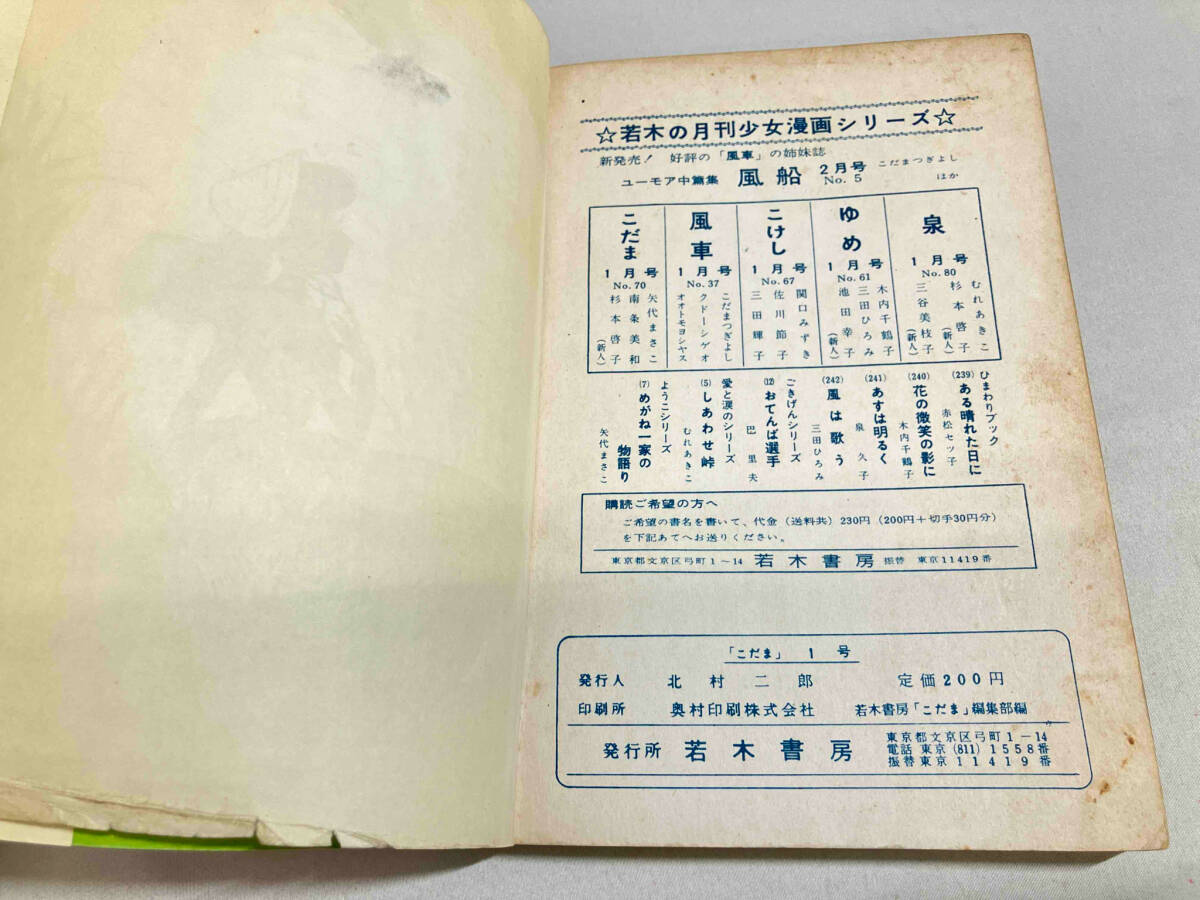 ☆若木の月刊少女漫画シリーズ☆
新発売! 好評の「風車」の姉妹誌
ユーモア中篇集 風船 2月号 No.5 こだまつぎよし ほか
泉
1月号
No.80
むれあきこ
杉本啓子(新人)
三谷美枝子(新人)
ゆめ
1月号
No.61
木内千鶴子
三田ひろみ
池田幸子(新人)
こけし
1月号
No.67
関口みずき
佐川節子
三田輝子
風車
1月号
No.37
こだまつぎよし
クドーシゲオ
オオトモヨシヤス
こだま
1月号
No.70
矢代まさこ
南条美和
杉本啓子(新人)
ひまわりブック
(239)ある晴れた日に
赤松セツ子
(240)花の微笑の影に
木内千鶴子
(241)あすは明るく
泉久子
(242)風は歌う
三田ひろみ
ごきげんシリーズ
(12)おてんば選手
巴里夫
愛と涙のシリーズ
(5)しあわせ峠
むれあきこ
ようこシリーズ
(7)めがね一家の
物語り
矢代まさこ
購読ご希望の方へ
ご希望の書名を書いて、代金(送料共)230円(200円+切手30円分)
を下記あてへお送りください。
東京都文京区弓町1~14 若木書房 振替 東京11419番
「こだま」 1号
発行人 北村二郎 定価200円
印刷所 奥村印刷株式会社 若木書房「こだま」編集部編
発行所 若木書房
東京都文京区弓町1-14
電話 東京(811)1558番
振替東京11419番